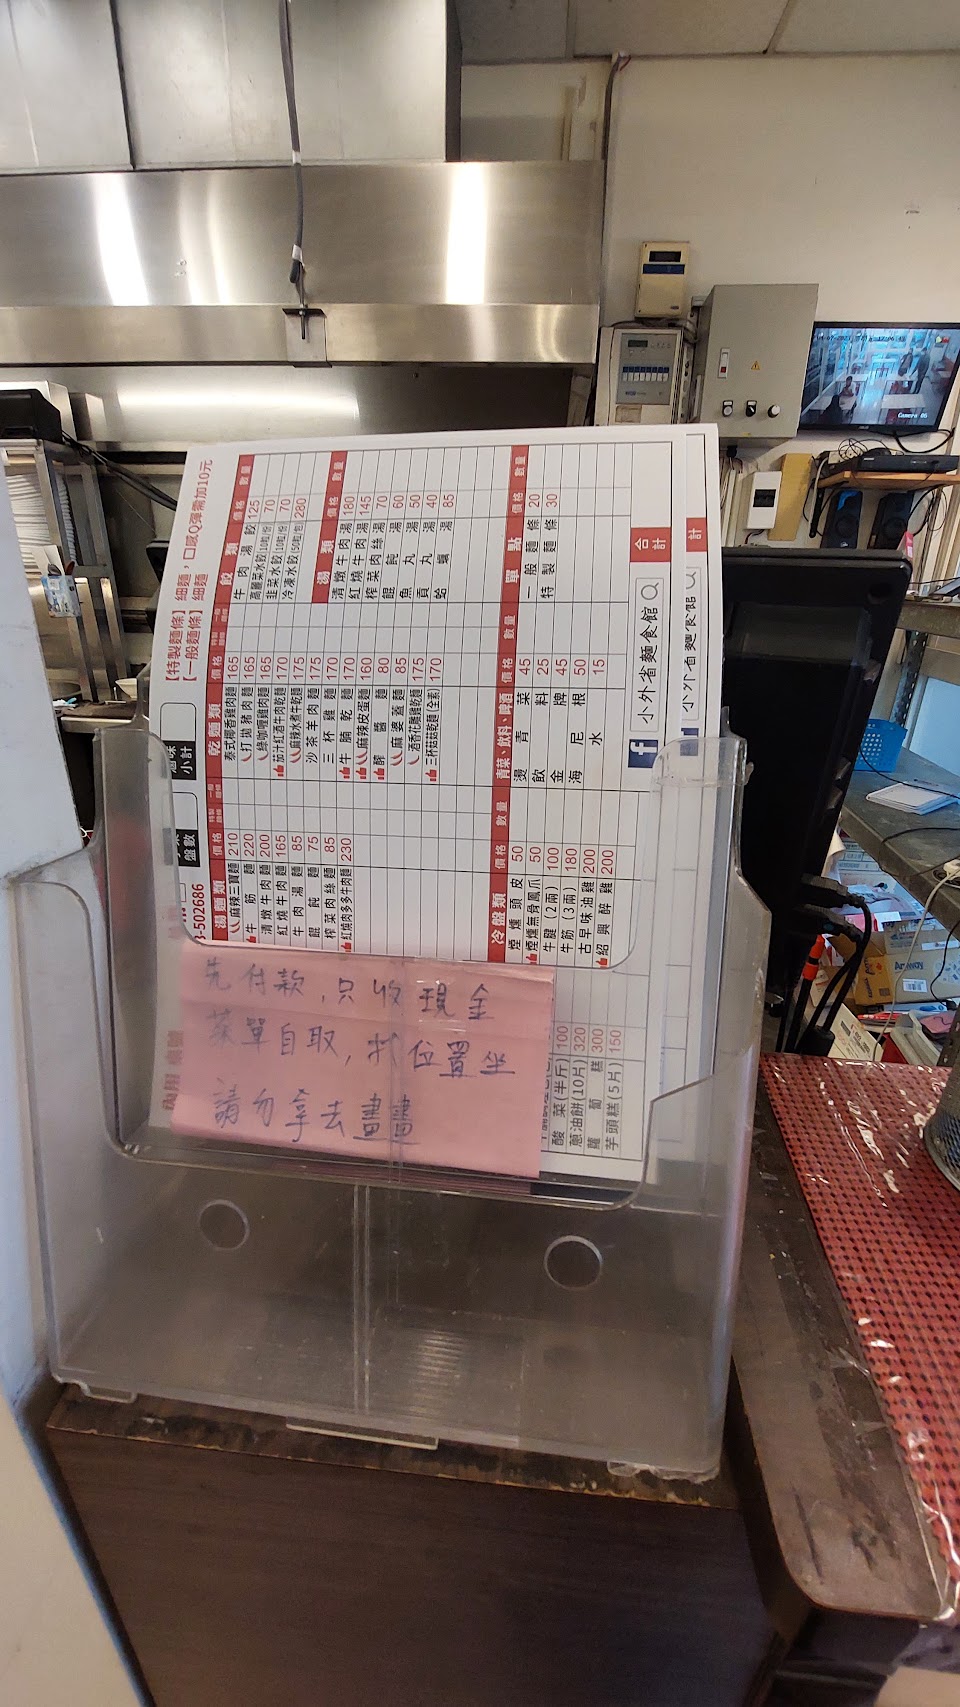 【特製麵條】細麵，口感Q彈需加10元
【一般麵條】細麵
3-502686
盤數
小計
湯麵類 價格
麻辣三寶麵 210
牛筋麵 220
清燉牛肉麵 200
紅燒牛肉麵 165
牛肉湯麵 85
餛飩麵 75
榨菜肉絲麵 85
紅燒肉多多牛肉麵 230
乾麵類 價格
泰式椰香雞肉麵 165
打拋豬肉麵 165
綠咖喱雞肉麵 165
茄汁紅酒牛肉乾麵 170
麻辣水煮牛乾麵 175
沙茶羊肉麵 175
三杯雞麵 170
牛腩乾麵 170
麻辣皮蛋麵 160
醡醬麵 80
麻婆蓋麵 85
酒香花雕雞乾麵 175
三杯菇菇乾麵(全素) 170
餃類 價格 數量
牛肉湯餃 125
高麗菜水餃(10粒/份) 70
韭菜水餃(10粒/份) 70
冷凍水餃(50粒/包) 280
湯類 價格 數量
清燉牛肉湯 180
紅燒牛肉湯 145
榨菜肉絲湯 70
餛飩湯 60
魚丸湯 50
貢丸湯 40
蛤蠣湯 85
冷盤類 價格 數量
煙燻頭皮 50
煙燻無骨鳳爪 50
牛腱(2兩) 100
牛筋(3兩) 180
古早味油雞 200
紹興醉雞 200
青菜、飲料、啤酒 價格 數量
燙青菜 45
飲料 25
金牌 45
海尼根 50
水 15
單點 價格 數量
一般麵條 20
特製麵 30
酸菜(半斤) 100
蔥油餅(10片) 320
蘿蔔糕 300
芋頭糕(5片) 150
合計
小外省麵食館
計
小外省麵食館
先付款，只收現金
菜單自取，
請勿拿去畫畫
Camera 05